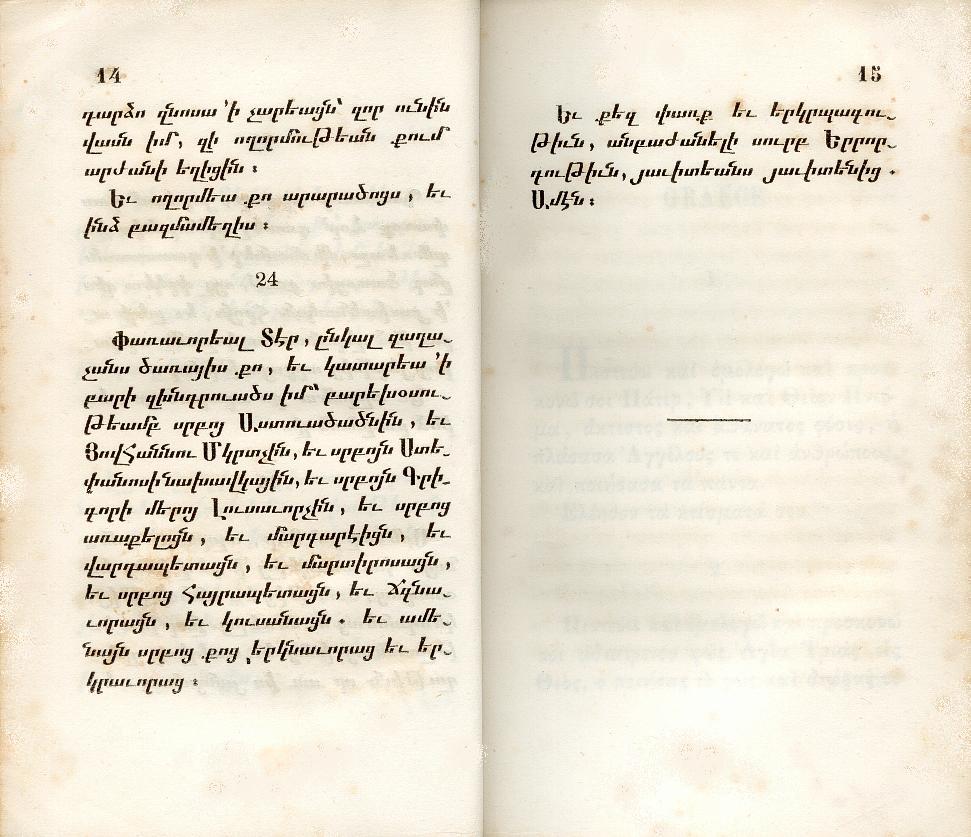 14
դարձո զնոսա ՚ի չարեացն՝ զոր ունին
վասն իմ, զի ողորմութեան քում
արժանի եղիցին ։
Եւ ողորմեա քո արարածոցս , եւ
ինձ բազմամեղիս ։
24
Փառաւորեալ Տէր , ընկալ զաղա֊
չանս ծառայիս քո , եւ կատարեա ՚ի
բարի զխնդրուածս իմ՝ բարեխօսու֊
թեամբ սրբոյ Աստուածածնին , եւ
Յովհաննու Մկրտչին, եւ սրբոյն Ստե֊
փանոսի նախավկային, եւ սրբոյն Գրի֊
գորի մերոյ Լուսաւորչին , եւ սրբոց
առաքելոցն , եւ մարգարէիցն , եւ
վարդապետացն , եւ մարտիրոսացն ,
եւ սրբոց Հայրապետացն , եւ Ճգնա֊
ւորացն , եւ կուսանացն . եւ ամե֊
նայն սրբոց քոց երկնաւորաց եւ եր֊
կրաւորաց ։
15
Եւ քեզ փառք եւ երկրպագու֊
թիւն , անբաժանելի սուրբ Երրոր֊
դութիւն, յաւիտեանս յաւիտենից .
Ամէն ։